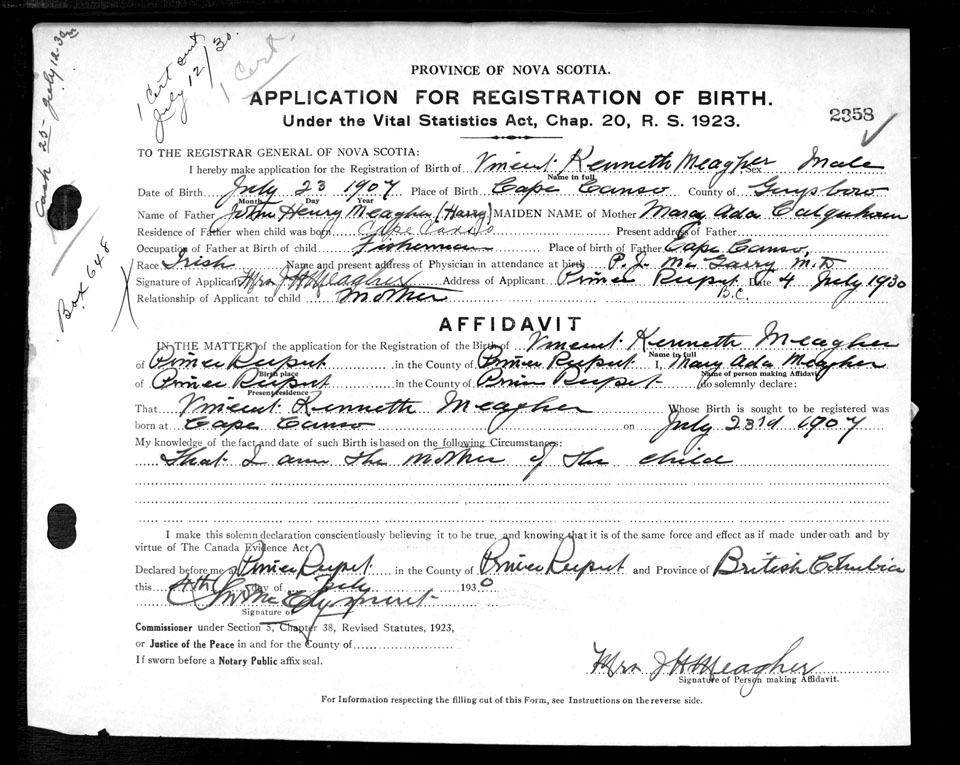 Cash 25- July 12-30
1 Cert out
July 12/30
1 Cert.
Box 648
PROVINCE OF NOVA SCOTIA.
APPLICATION FOR REGISTRATION OF BIRTH.
2358
Under the Vital Statistics Act, Chap. 20, R. S. 1923.
TO THE REGISTRAR GENERAL OF NOVA SCOTIA:
I hereby make application for the Registration of Birth of Vincent Kenneth Meagher Sex Male
Name in full
Date of Birth July 23 1907 Place of Birth Cape Canso County of Guysboro
Month Day Year
Name of Father John Henry Meagher (Harry) MAIDEN NAME of Mother Mary Ada Colquhoun
Residence of Father when child was born Cape Canso Present address of Father
Occupation of Father at Birth of child Fisherman Place of birth of Father Cape Canso
Race Irish Name and present address of Physician in attendance at birth P. J. McGarry M.D
Signature of Applicant Mrs J H Meagher Address of Applicant Prince Rupert B.C. Date 4 July 1930
Relationship of Applicant to child Mother
AFFIDAVIT
IN THE MATTER of the application for the Registration of the Birth of Vincent Kenneth Meagher
Name in full
of Prince Rupert in the County of Prince Rupert I, Mary Ada Meagher
Birth place Name of person making Affidavit
of Prince Rupert in the County of Prince Rupert do solemnly declare:
Present residence
That Vincent Kenneth Meagher Whose Birth is sought to be registered was
born at Cape Canso on July 23rd 1907
My knowledge of the fact and date of such Birth is based on the following Circumstances:
That I am the mother of the child
I make this solemn declaration conscientiously believing it to be true, and knowing that it is of the same force and effect as if made under oath and by
virtue of The Canada Evidence Act.
Declared before me at Prince Rupert in the County of Prince Rupert and Province of British Columbia
this 4th day of July 1930
Signature of
Commissioner under Section 5, Chapter 38, Revised Statutes, 1923,
or Justice of the Peace in and for the County of
If sworn before a Notary Public affix seal.
Mrs J H Meagher
Signature of Person making Affidavit.
For Information respecting the filling out of this Form, see Instructions on the reverse side.